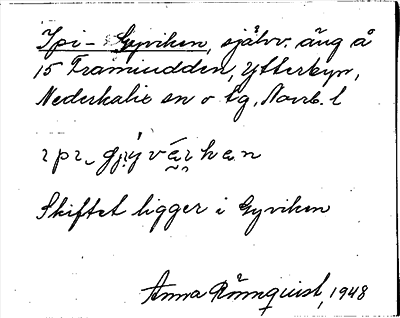 Ipi- Gyviken, självv. äng å
15 Framiudden, Ytterbyn,
Nederkalix sn o tg, Norrb. l
Skiftet ligger i Gyviken
Anna Rönnquist, 1948